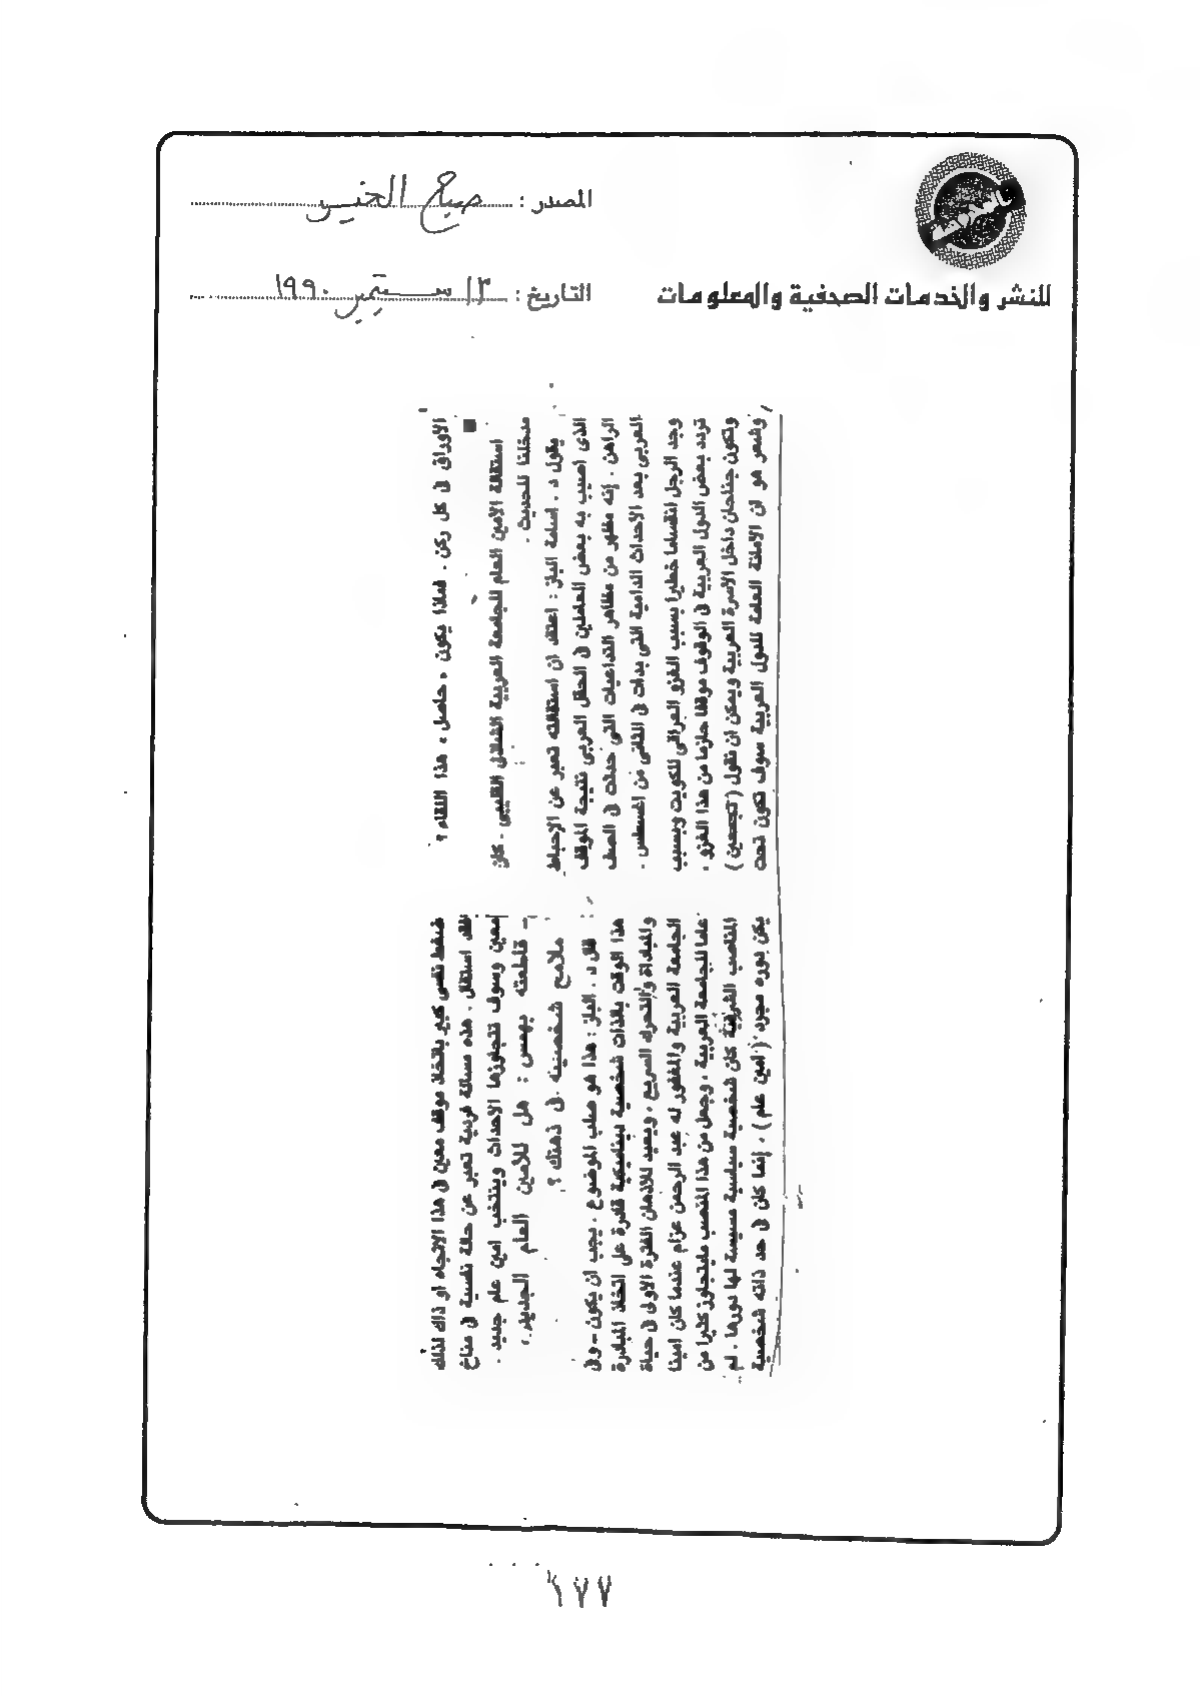 المصدر : صباح الخير
التاريخ : ١٣ سبتمبر ١٩٩٠
للنشر والخدمات الصحفية والمعلومات
الاوراق فى كل ركن . فماذا يكون « حاصل » هذا اللقاء ؟
■
استقالة الامين العام للجامعة العربية الشاذلى القليبى . كان
مدخلنا للحديث .
يقول د . اسامة الباز : اعتقد ان استقالته تعبر عن الإحباط
الذى اصيب به بعض العاملين فى الحقل العربى نتيجة الموقف
الراهن . إنه مظهر من مظاهر التداعيات التى حدثت فى الصف
العربى بعد الأحداث الدامية التى بدات فى الثانى من اغسطس .
وجد الرجل انقساما خطيرا بسبب الغزو العراقى للكويت وبسبب
تردد بعض الدول العربية فى الوقوف موقفا حازما من هذا الغزو ،
وتكون جناحان داخل الأسرة العربية ويمكن ان نقول ( تجمعين )
وشعر هو ان الامانة العامة للدول العربية سوف تكون تحت
ضغط نفسى كبير باتخاذ موقف معين فى هذا الاتجاه او ذاك لذلك
فقد استقال . هذه مسالة فردية تعبر عن حالة نفسية فى مناخ
معين وسوف تتجاوزها الاحداث وينتخب امين عام جديد .
- قاطعته بهمس : هل للأمين العام الجديد ،
ملامح شخصيته فى ذهنك ؟
قال د . الباز : هذا هو صلب الموضوع . يجب ان يكون - وفى
هذا الوقت بالذات شخصية ديناميكية قادرة على اتخاذ المبادرة
والمباداة والتحرك السريع . ويعيد للاذهان الفترة الاولى فى حياة
الجامعة العربية والمغفور له عبد الرحمن عزام عندما كان امينا
عاما للجامعة العربية ، وجعل من هذا المنصب مايتجاوز كثيرا من
المناصب الشرفية كان شخصية سياسية مسيسة لها دورها . لم
يكن دوره مجرد ( امين عام ) . إنما كان فى حد ذاته شخصية
١٧٧